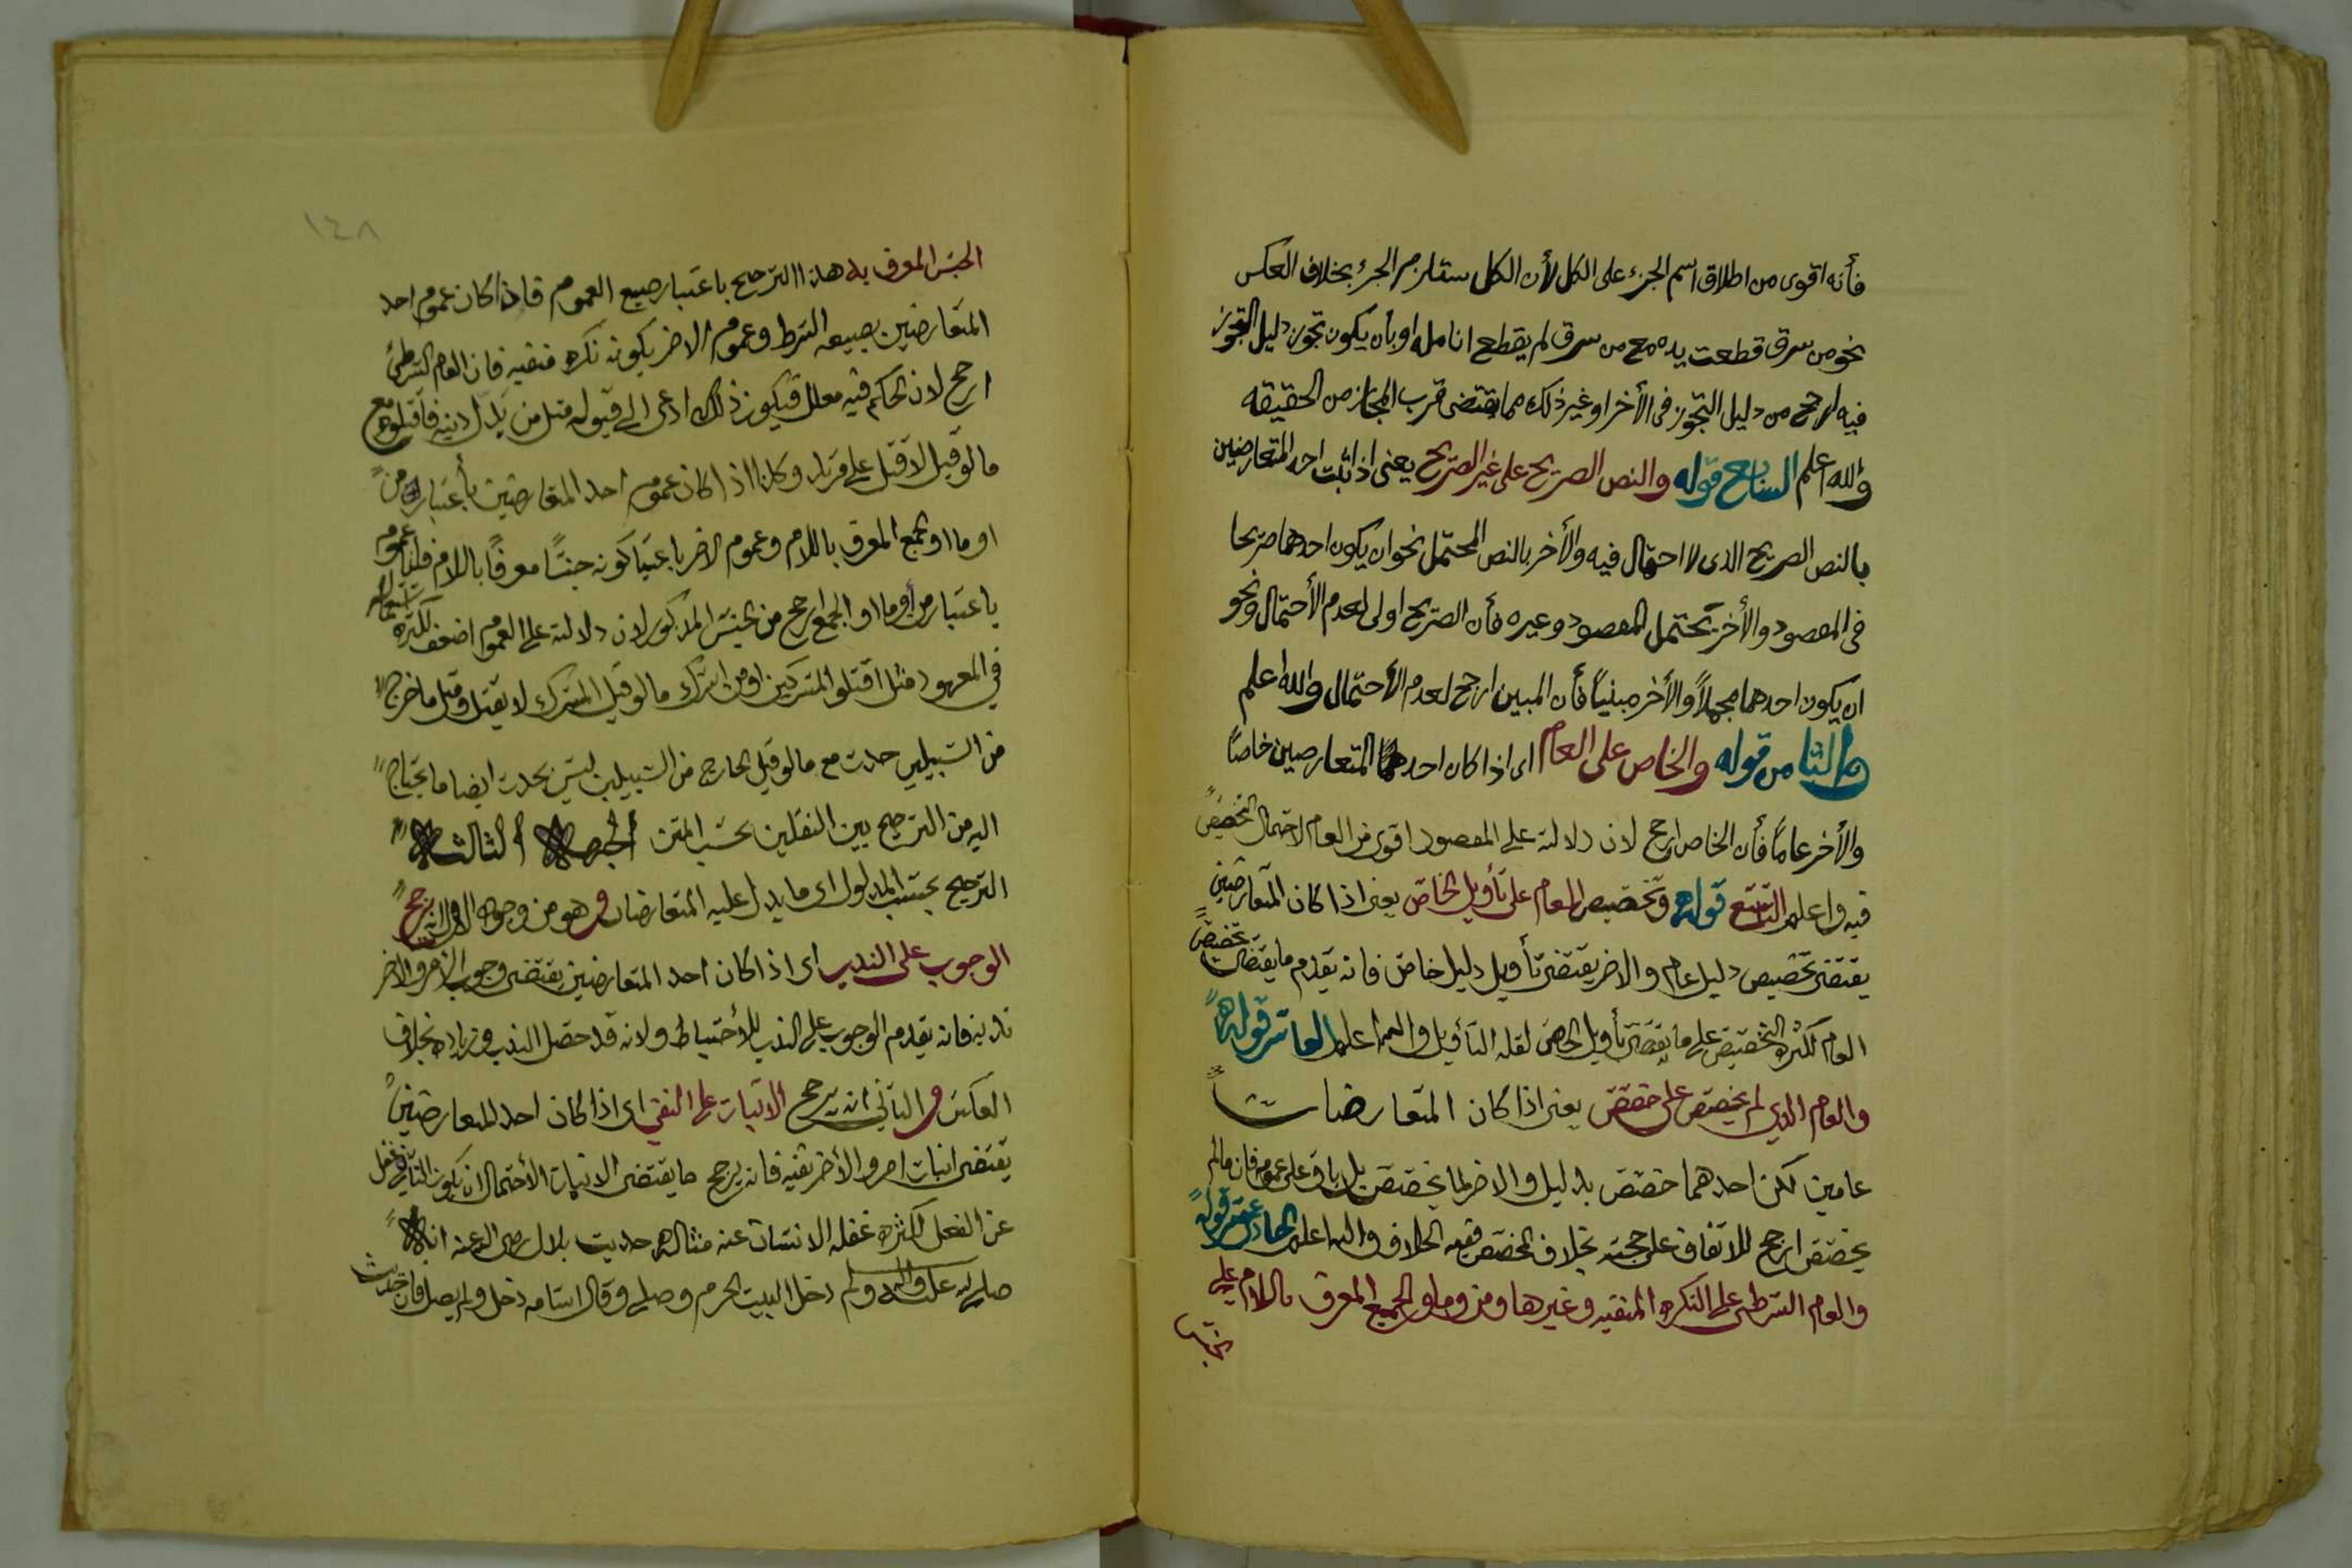 فأنه اقوى من اطلاق اسم الجزء على الكل لأن الكل يستلزم الجزء بخلاف العكس
نحو من سرق قطعت يده مع من سرق لم يقطع انامله او بأن يكون تجوز دليل التجوز
فيه ارجح من دليل التجوز فى الأخر او غير ذلك مما يقتضى قرب المجاز من الحقيقه
والله اعلم السابع قوله والنص الصريح على غير الصريح يعنى اذا ثبت احد المتعارضين
بالنص الصريح الذى لا احتمال فيه والأخر بالنص المحتمل نحو ان يكون احدهما صريحا
فى المقصود والأخر يحتمل المقصود وغيره فأن الصريح اولى لعدم الأحتمال ونحو
ان يكون احدهما مجملاً والأخر مبنياً فأن المبين ارجح لعدم الأحتمال والله اعلم
الثامن قوله والخاص على العام اى اذا كان احد المتعارضين خاصاً
والأخر عاماً فأن الخاص ارجح لان دلالته على المقصود اقوى من العام لاحتمال التخصيص
فيه واعلم التاسع قوله وتخصيص العام على تأويل الخاص يعنى اذا كان المتعارضين
يقتضى تخصيص دليل عام والاخر يقتضى تأويل دليل خاص فانه يقدم ما يقتضى تخصيص
العام لكثرة التخصيص على ما يقتضى تأويل الخاص لقله التأويل والله اعلم العاشر قوله
والعام الذي لم يخصص على خصص يعنى اذا كان المتعارضات
عامين لكن احدهما خصص بدليل والاخر لما يخصص بل باق على عمومه فان ما لم
يخصص ارجح للاتفاق على حجته بخلاف المخصص ففيه الخلاف والله اعلم الحادى عشر قوله
والعام الشرطى على النكره المنفيه وغيرها ومن وما والجمع المعرف باللام على
الجنس
١٤٨
الجنس المعرف به هذا الترجيح باعتبار صيغ العموم فاذا كان عموم احد
المتعارضين بصيغه الشرط وعموم الاخر بكونه نكره منفيه فان العام الشرطى
ارجح لان الحكم فيه معلل فيكون ذلك ادعى الى قبوله مثل من بدل دينه فاقتلوه مع
ما لو قيل لا قتل على مرتد وكذا اذا كان عموم احد المتعارضين بأعتبار من
او ما او الجمع المعرف باللام وعموم الاخر باعتبار كونه جنساً معرفاً باللام فان عموم
باعتبار من أو ما او الجمع ارجح من الجنس المذكور لان دلالته على العموم اضعف لكثرة استعماله
في المعهود مثل اقتلوا المشركين او من اشرك ما لو قيل المشرك لا يقتل ومثل ما خرج
من السبيلين حدث مع ما لو قيل الخارج من السبيلين ليس بحدث ايضا ما يحتاج
اليه من الترجيح بين النقلين بحسب المتن الجهة الثالثة
الترجيح بحسب المدلول اى ما يدل عليه المتعارضان وهو من وجوه الاول انه يرجح
الوجوب على الندب اى اذا كان احد المتعارضين يقتضى وجوب الامر والاخر
ندبه فانه يقدم الوجوب على الندب للأحتياط ولانه قد حصل الندب وزيادة بخلاف
العكس والثاني انه يرجح الاثبات على النفي اى اذا كان احد المتعارضين
يقتضى اثبات امر والأخر نفيه فانه يرجح ما يقتضى الاثبات لأحتمال ان يكون الثانى غفل
عن الفعل لكثره غفله الانسان عنه مثاله حديث بلال رضى الله عنه انه
صلى الله عليه واله وسلم دخل البيت الحرم وصلى وقال اسامه دخل ولم يصل فان حديث